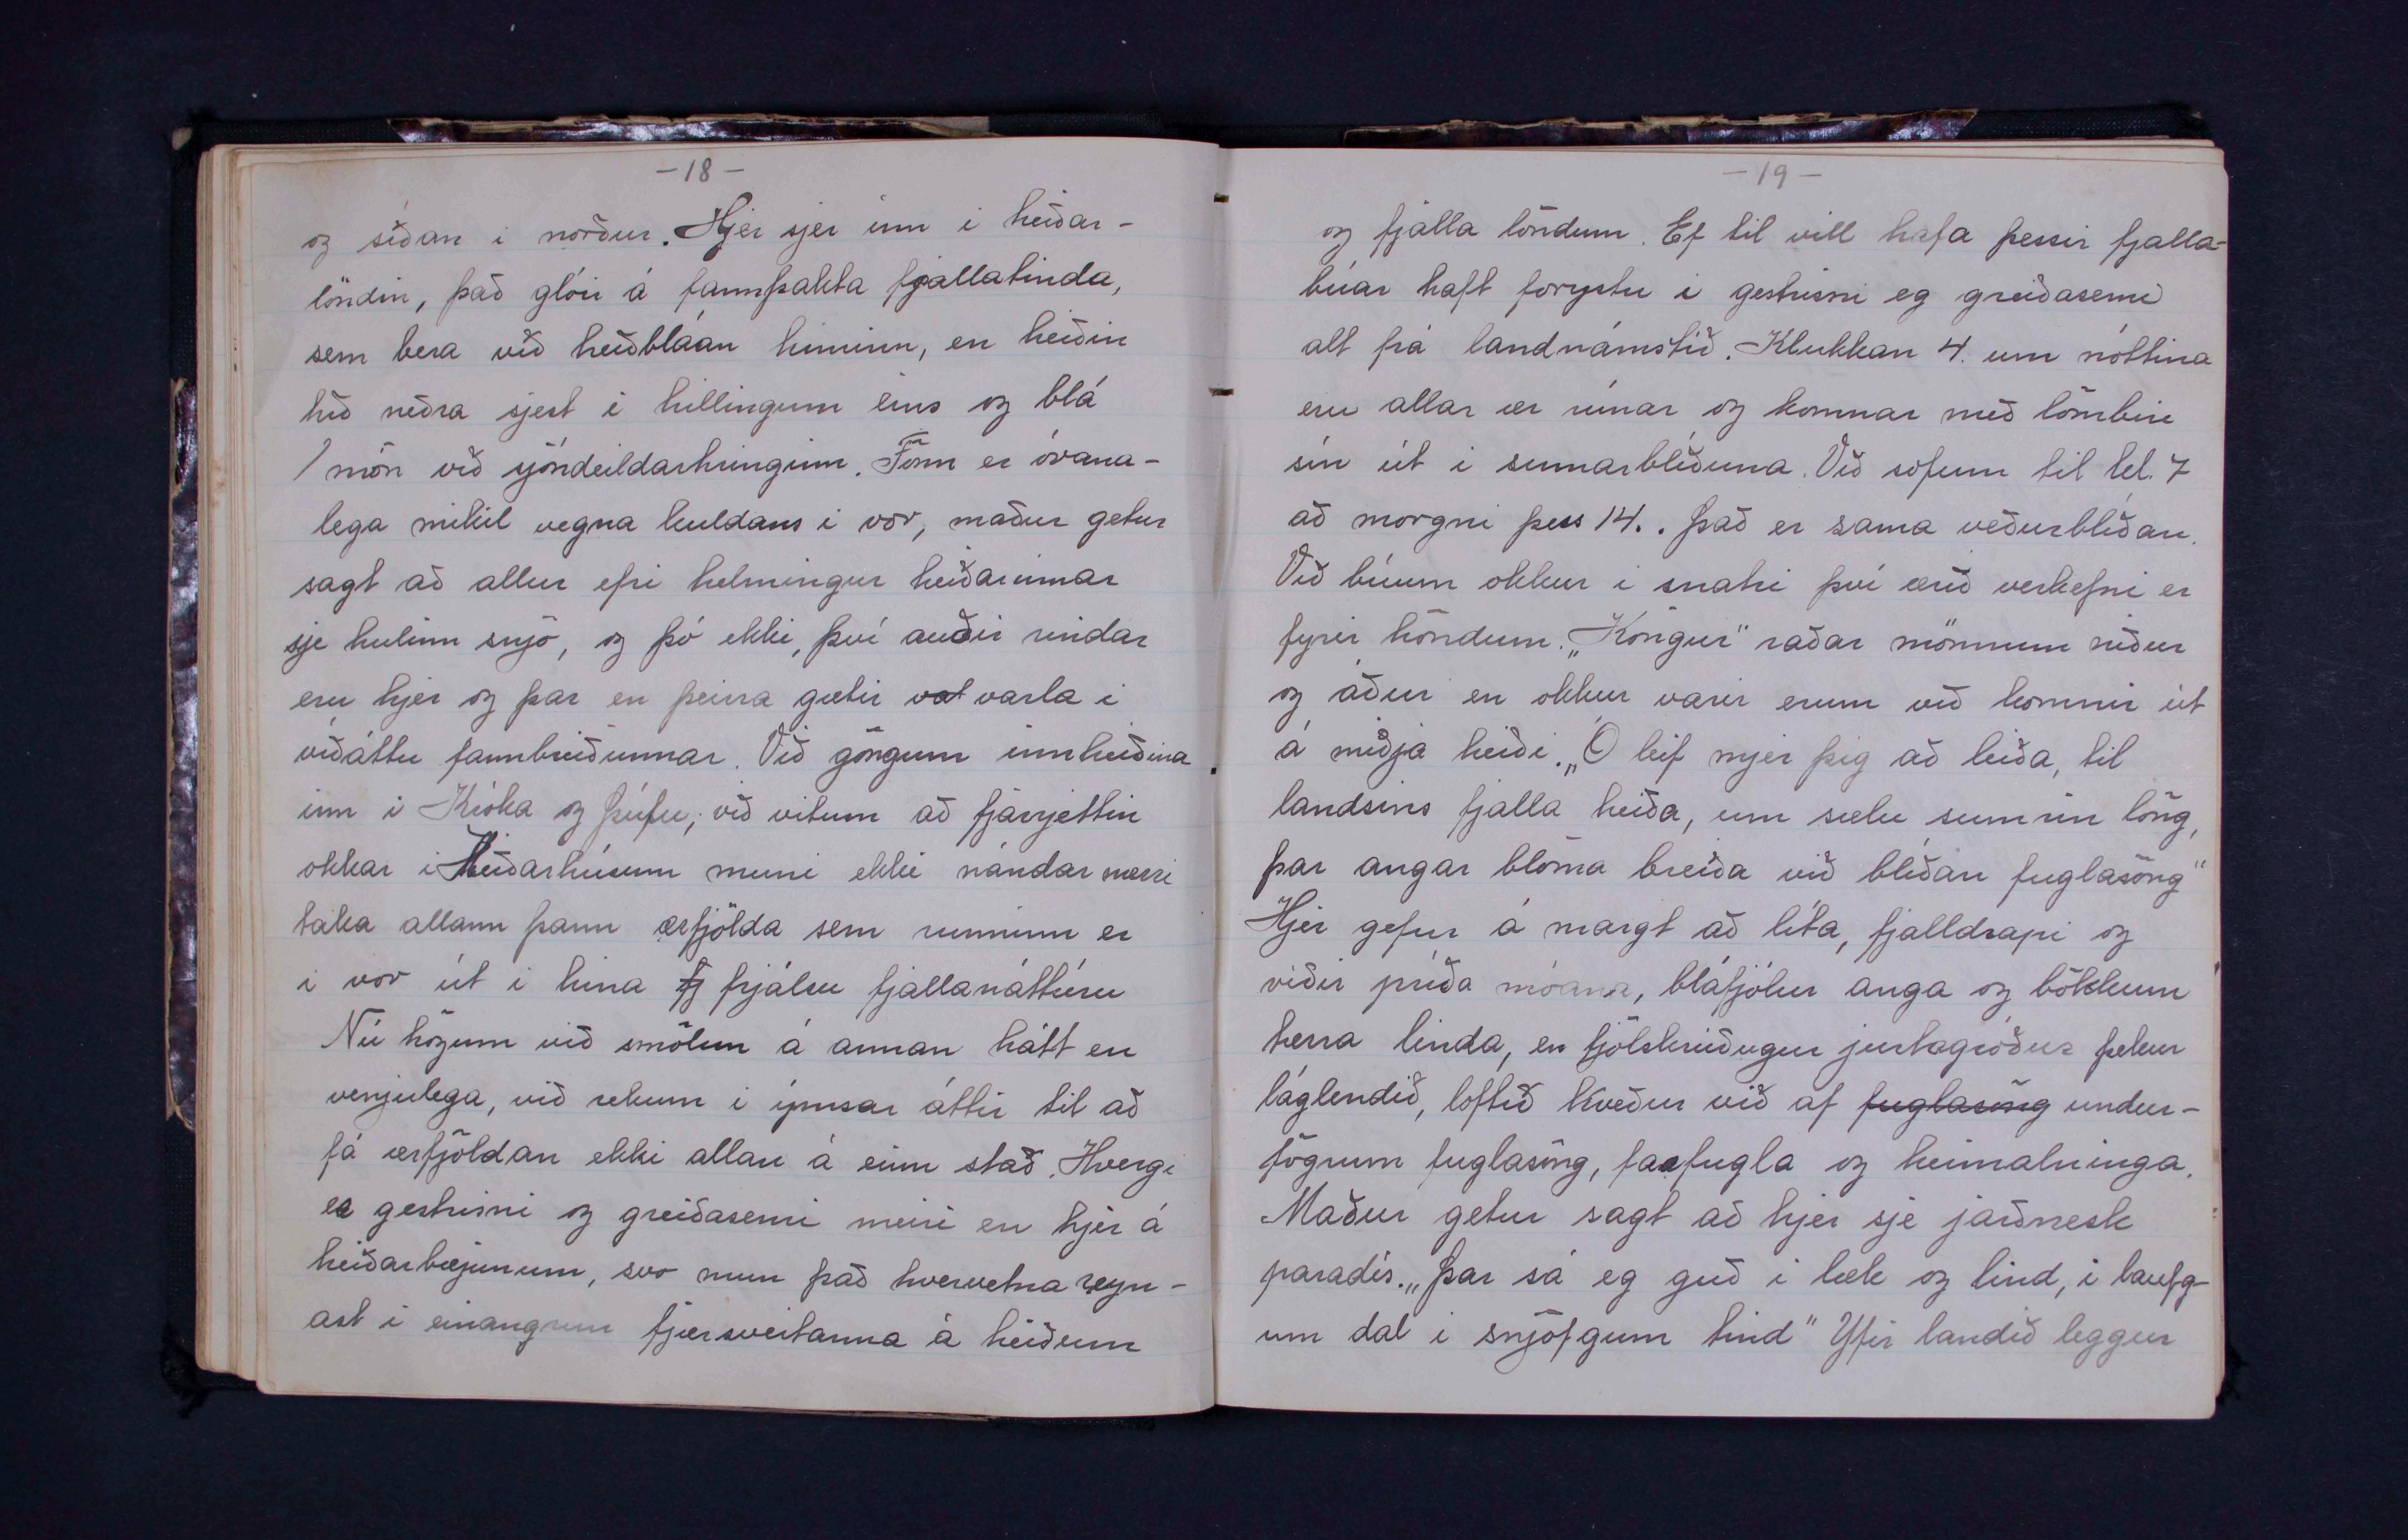 -18-
og síðan i norður. Hjer sjer inn i heiðar-
löndin, það glóir á fannþakta fjallatinda,
sem bera við heiðbláan himinn, en heiðin
hið neðra sjest i hillingum eins og blá
mön við sjóndeildarhringinn. Fönn er óvana-
lega mikil vegna kuldans i vor, maður getur
sagt að allur efri helmingur heiðarinnar
sje hulinn snjó, og þó ekki, því auðir rindar
eru hjer og þar en þeirra gætir vat varla i
víðáttu fannbreiðunnar. Við göngum innheiðina
inn i Króka og Þúfu, við vitum að fjárrjettin
okkar i Heiðarhúsum muni ekki nándar nærri
taka allann þann ærfjölda sem runninn er
i vor út i hina fj frjálsu fjallanáttúru
Nú högum við smölun á annan hátt en
venjulega, við rekum i ýmsar áttir til að
fá ærfjöldan ekki allan á einn stað. Hverge
er gestrisni og greiðasemi meiri en hjer á
heiðarbæjunum, svo mun það hvervetna reyn-
ast i einangrun fjærsveitanna á heiðum
-19-
og fjalla löndum. Ef til vill hafa þessir fjalla-
búar haft forystu i gestrisni eg greiðasemi
alt frá landnámstíð. Klukkan 4. um nóttina
eru allar ær rúnar og komnar með lömbin
sín út i sumarblíðuna. Við sofum til kl. 7
að morgni þess 14.. Það er sama veðurblíðan.
Við búum okkur i snatri því ærið verkefni er
fyrir höndum. „Kóngur" raðar mönnum niður
og áður en okkur varir erum við komnir út
á miðja heiði. „Ó leif mjer þig að leiða, til
landsins fjalla heiða, um sælu sumrin löng,
þar angar blóma breiða við blíðan fuglasöng"
Hjer gefur á margt að líta, fjalldrapi og
víðir prýða móana, bláfjólur anga og bökkum
tærra linda, en fjölskrúðugur jurtagróður þekur
láglendið, loftið kveður við af fuglasöng undur-
fögrum fuglasöng, farfugla og heimalninga.
Maður getur sagt að hjer sje jarðnesk
paradís. „Þar sá eg guð i læk og lind, i laufg-
um dal i snjófgum tind" Yfir landið leggur